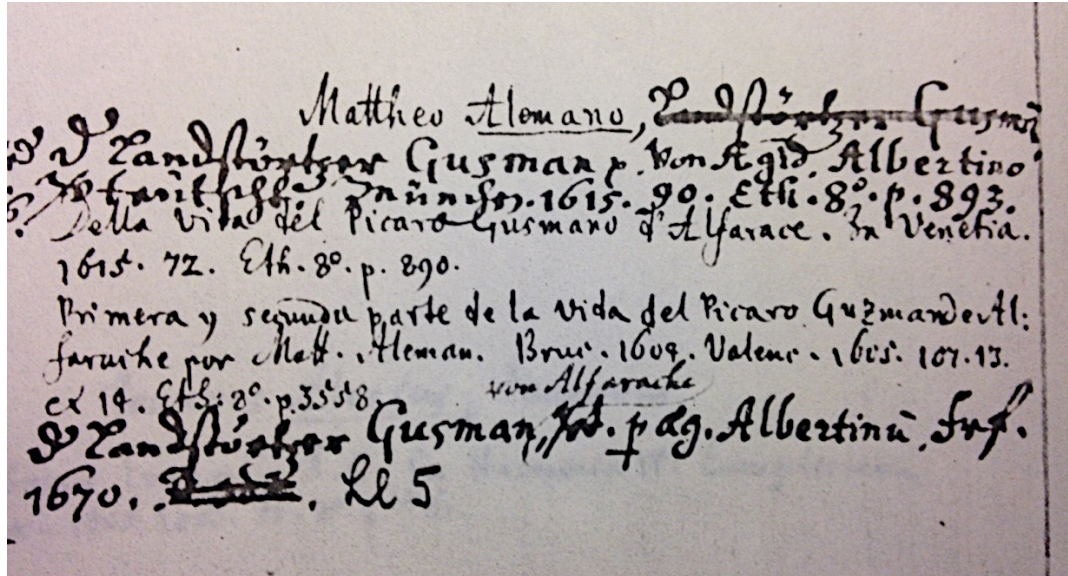 Mattheo Alemano, Landstörtzer Gusmā
d Landstörtzer Gusman p. von Ægid. Albertino
München. 1615. 90. Eth. 8°. p. 893.
Della Vita del Picaro Gusmano d'Alfarace. In Venetia.
1615. 72. Eth. 8°. p. 890.
Primera y segunda parte de la Vida del Picaro Guzman de Al:
farache por Matt. Aleman. Bruc. 1604. Valenc. 1605. 107.13.
et 14. Eth. 8°. p. 3558.
von Alfarache
d Landstörtzer Gusman, p æg. Albertinū. Frf.
1670. 5